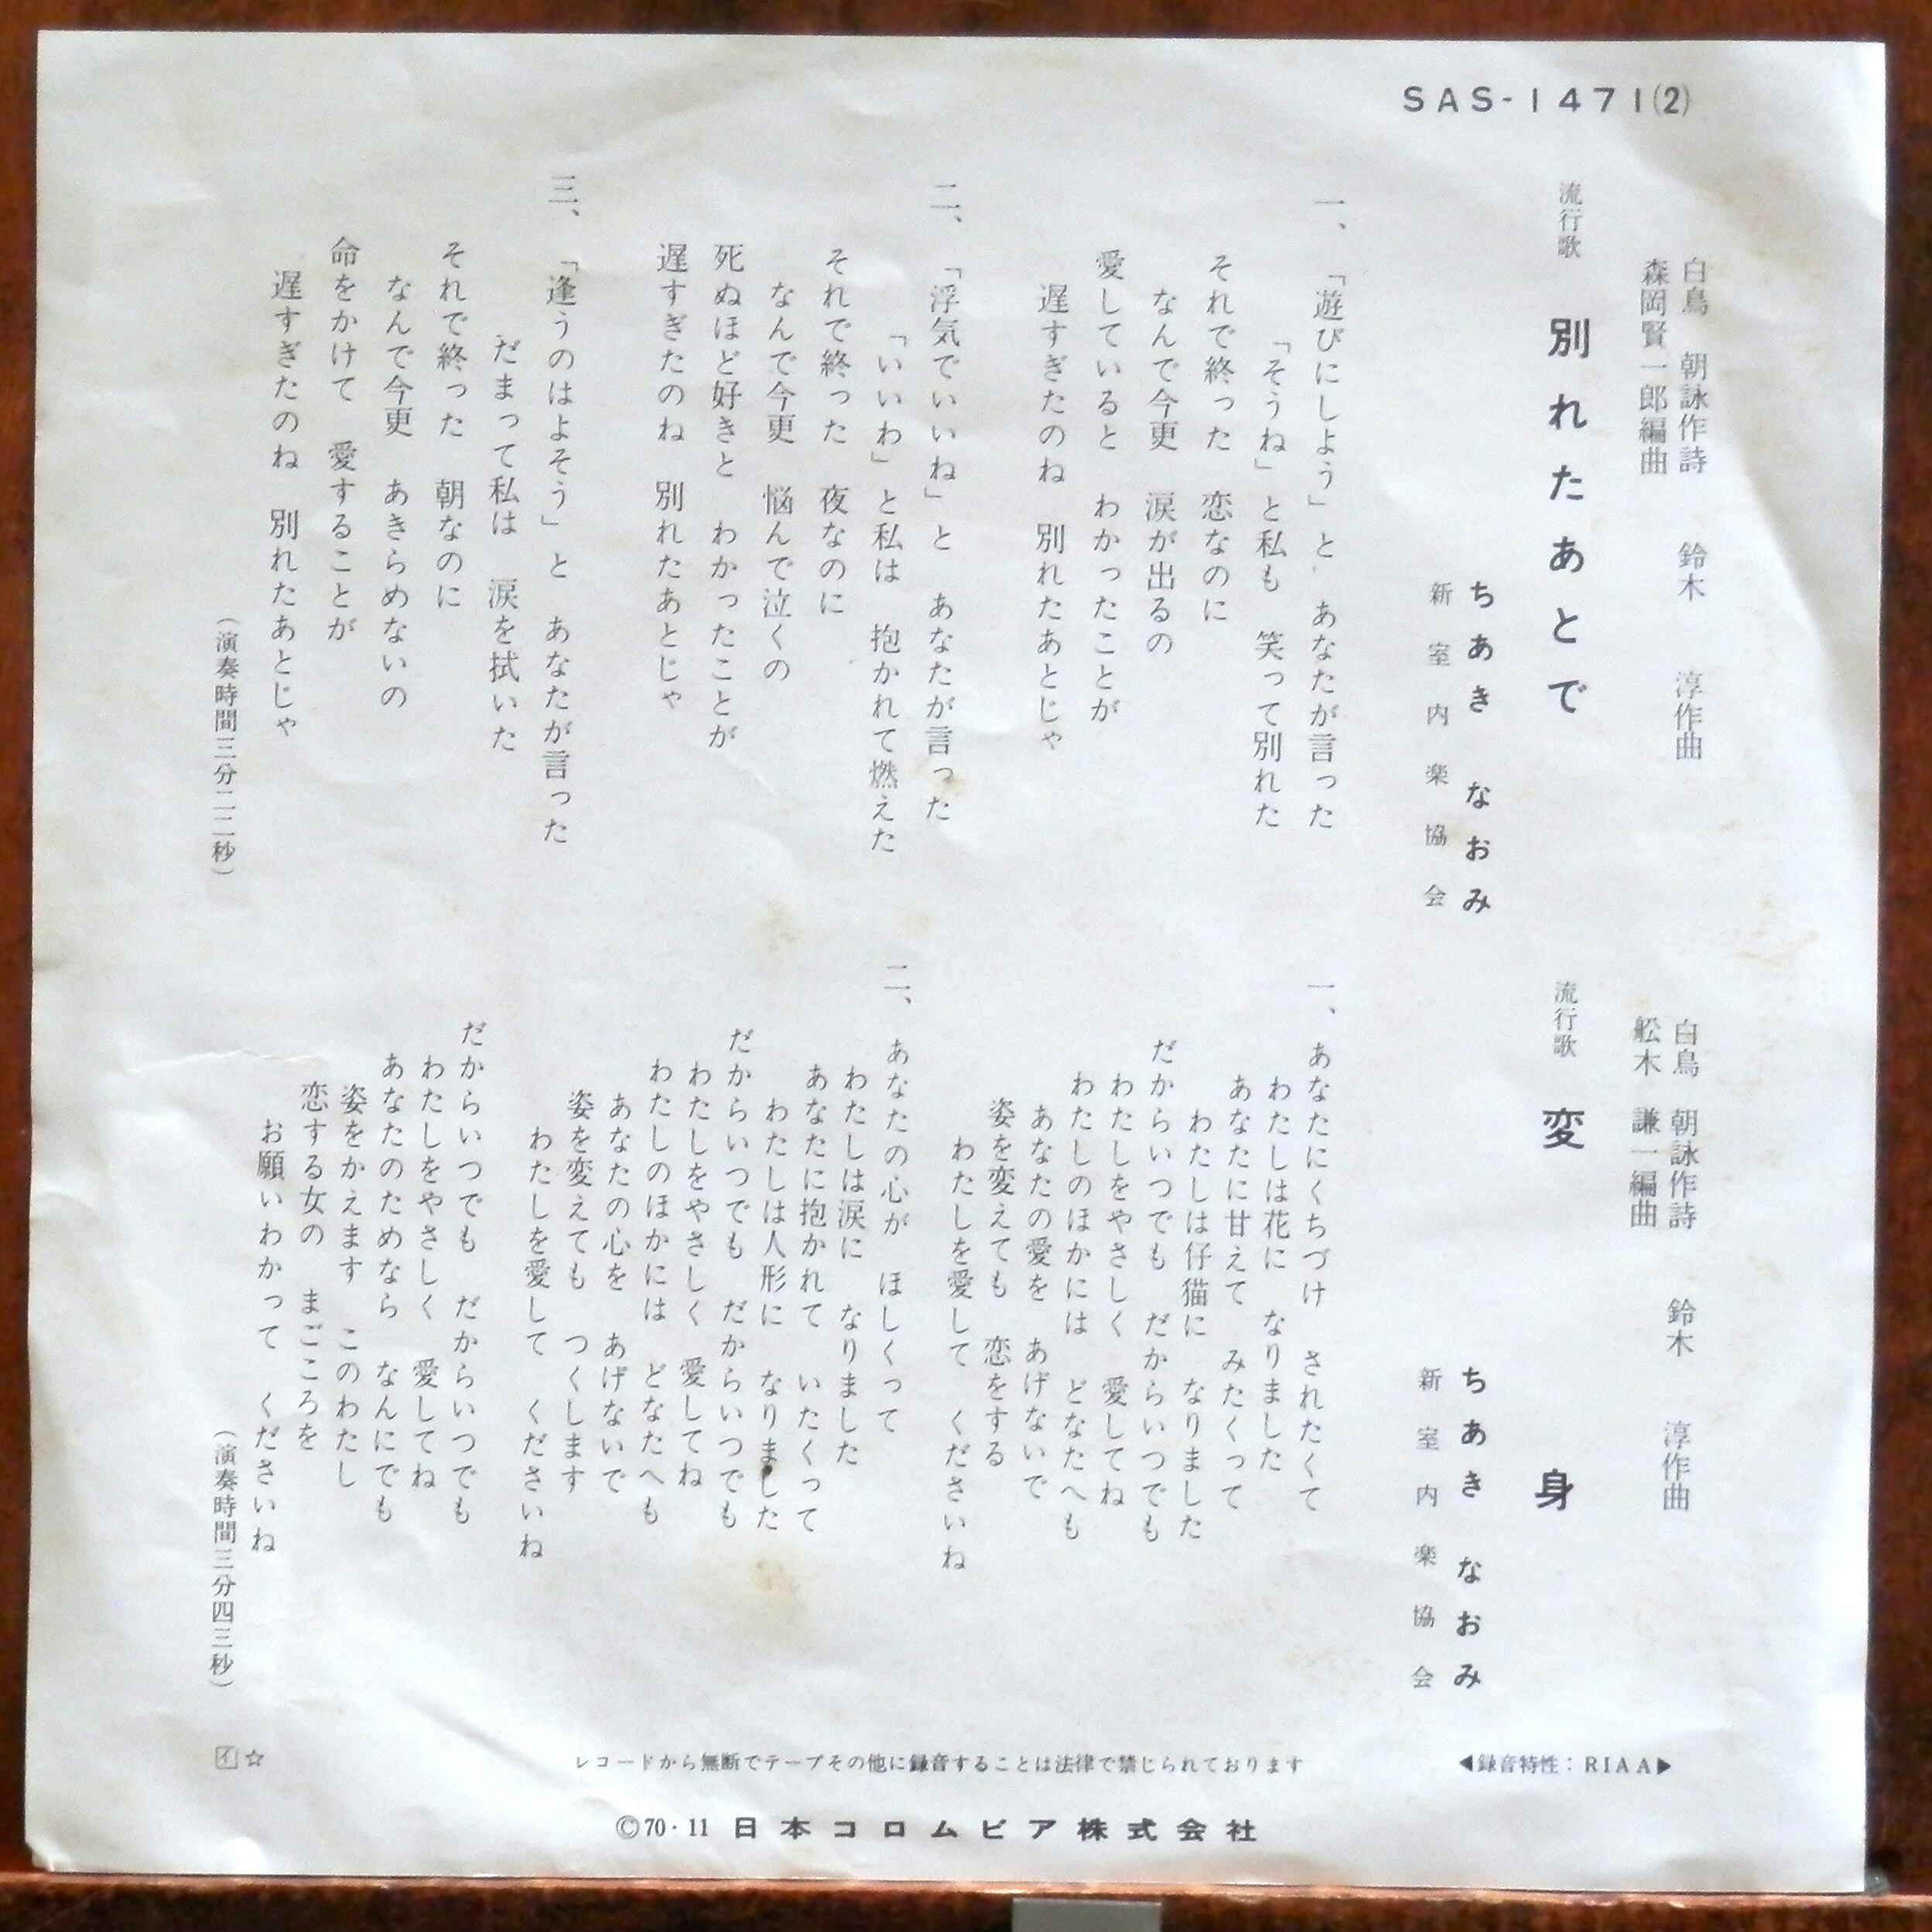 SAS-1471(2)
白鳥　朝詠作詩　鈴木　淳作曲
森岡賢一郎編曲
流行歌　別れたあとで
ちあき　なおみ
新室内楽協会
一、「遊びにしよう」と　あなたが言った
「そうね」と私も　笑って別れた
それで終った　恋なのに
なんで今更　涙が出るの
愛していると　わかったことが
遅すぎたのね　別れたあとじゃ
二、「浮気でいいね」と　あなたが言った
「いいわ」と私は　抱かれて燃えた
それで終った　夜なのに
なんで今更　悩んで泣くの
死ぬほど好きと　わかったことが
遅すぎたのね　別れたあとじゃ
三、「逢うのはよそう」と　あなたが言った
だまって私は　涙を拭いた
それで終った　朝なのに
なんで今更　あきらめないの
命をかけて　愛することが
遅すぎたのね　別れたあとじゃ
（演奏時間三分二二秒）
白鳥　朝詠作詩　鈴木　淳作曲
舩木　謙一編曲
流行歌　変身
ちあき　なおみ
新室内楽協会
一、あなたにくちづけ　されたくて
わたしは花に　なりました
あなたに甘えて　みたくって
わたしは仔猫に　なりました
だからいつでも　だからいつでも
わたしをやさしく　愛してね
わたしのほかには　どなたへも
あなたの愛を　あげないで
姿を変えても　恋をする
わたしを愛して　くださいね
二、あなたの心が　ほしくって
わたしは涙に　なりました
あなたに抱かれて　いたくって
わたしは人形に　なりました
だからいつでも　だからいつでも
わたしをやさしく　愛してね
わたしのほかには　どなたへも
あなたの心を　あげないで
姿を変えても　つくします
わたしを愛して　くださいね
だからいつでも　だからいつでも
わたしをやさしく　愛してね
あなたのためなら　なんにでも
姿をかえます　このわたし
恋する女の　まごころを
お願いわかって　くださいね
（演奏時間三分四三秒）
◀録音特性：RIAA▶
レコードから無断でテープその他に録音することは法律で禁じられております
イ☆
©70・11 日本コロムビア株式会社